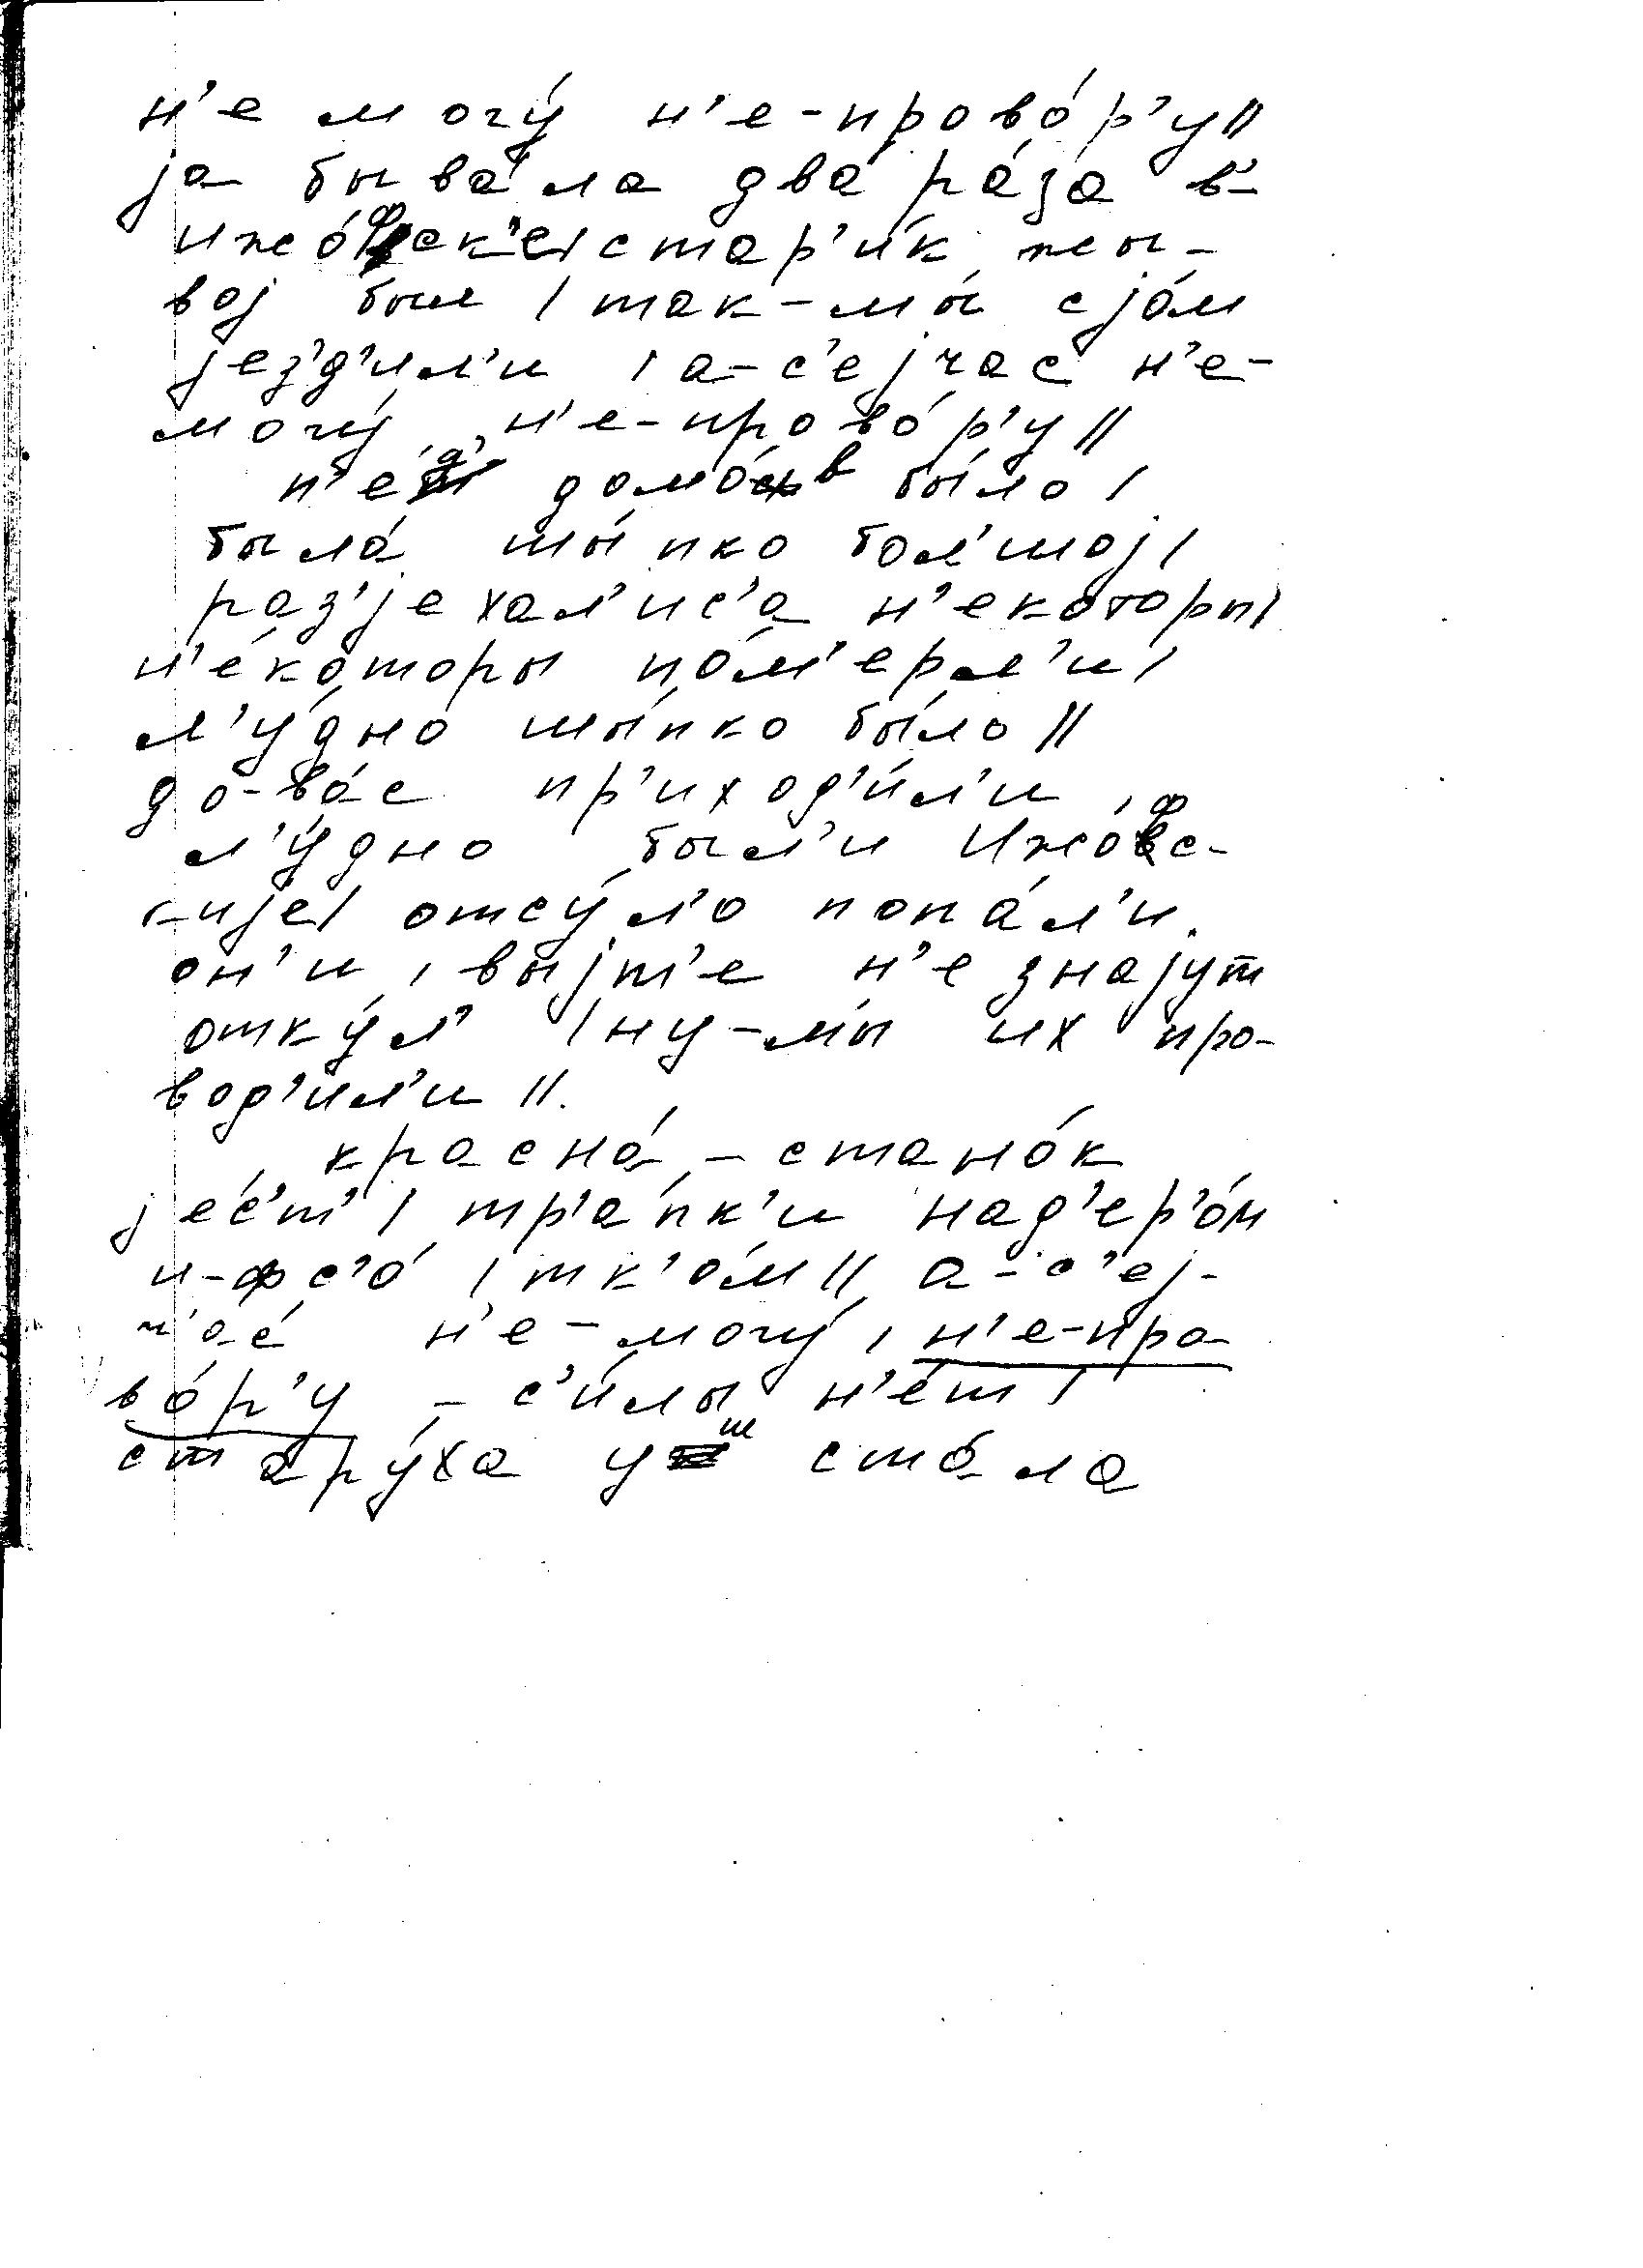 н'е могу́ н'е-прово́р'у//
ја быва́ла два́ ра́за в-
ижо́фск'е/стар'и́к жы-
вој был / так-мы́ сјо́м
јез'д'ил'и / а-с'ејчас н'е-
могу́ н'е-прово́р'у//
п'ед' домо́в бы́ло /
была́ шы́пко бол'шој/
раз'јехал'ис'а н'екоторы/
н'е́которы по́м'ерл'и/
л'у́дно шы́пко бы́ло //
до-ва́с пр'иход'и́л'и /
л'у́дно бы́л'и Ижо́фс-
кије/ отсу́л'о попа́л'и
он'и / выјт'е н'е знајут
отку́л' / ну-мы́ их про-
вод'ил'и //.
красна́ - стано́к
јес'т' / тр'а́пк'и над'ер'о́м
и-фс'о́ / тк'о́м// а-с'еј-
ч'ас н'е-могу́ / н'е-про-
во́р'у - с'и́лы н'е́т /
стару́ха уш ста́ла